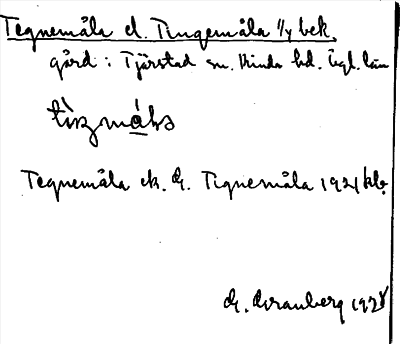 Tegnemåla el. Tingemåla 1/4 bek.
gård: Tjärstad sn. Kinda hd. Ögl. län
Tegnemåla ek. G. Tignemåla 1921
G. Granberg 1928